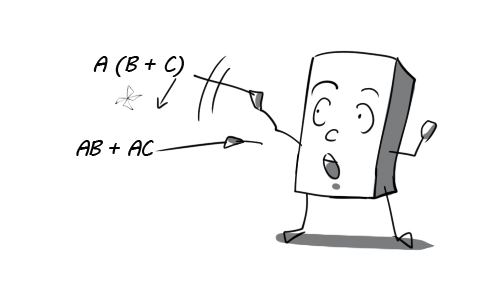 A (B + C)
AB + AC